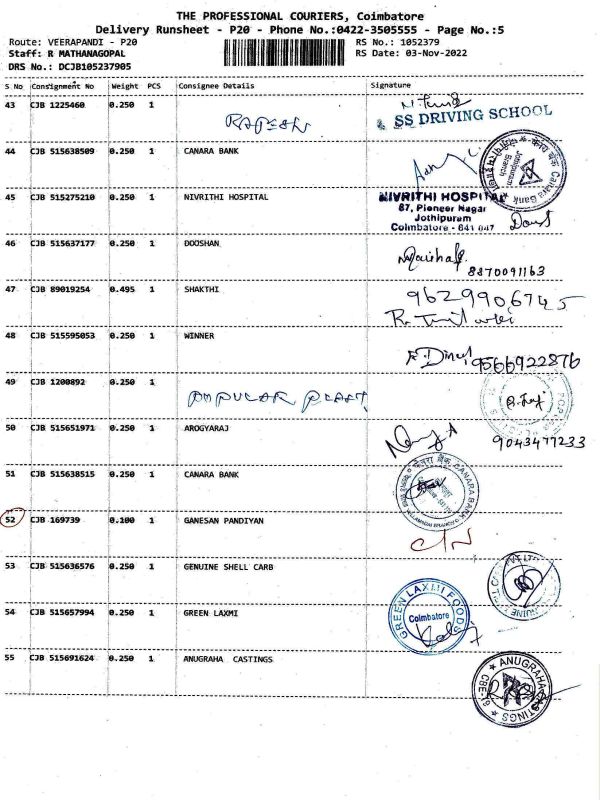 THE PROFESSIONAL COURIERS, Coimbatore
Delivery Runsheet - P20 - Phone No.:0422-3505555 - Page No.:5
Route: VEERAPANDI - P20 RS No.: 1052379
Staff: R MATHANAGOPAL RS Date: 03-Nov-2022
DRS No.: DCJB105237905
S No Consignment No Weight PCS Consignee Details Signature
43 CJB 1225460 0.250 1
SS DRIVING SCHOOL
44 CJB 515638509 0.250 1 CANARA BANK
45 CJB 515275210 0.250 1 NIVRITHI HOSPITAL
NIVRITHI HOSPITAL
87, Pioneer Nagar
Jothipuram
Coimbatore - 641 047
46 CJB 515637177 0.250 1 DOOSHAN
8870091163
47 CJB 89019254 0.495 1 SHAKTHI
9629906745
48 CJB 515595053 0.250 1 WINNER
9566922876
49 CJB 1200892 0.250 1
50 CJB 515651971 0.250 1 AROGYARAJ
9043477233
51 CJB 515638515 0.250 1 CANARA BANK
CANARA BANK
52 CJB 169739 0.100 1 GANESAN PANDIYAN
C/N
53 CJB 515636576 0.250 1 GENUINE SHELL CARB
54 CJB 515657994 0.250 1 GREEN LAXMI
GREEN LAXMI FOODS
Coimbatore
55 CJB 515691624 0.250 1 ANUGRAHA CASTINGS
ANUGRAHA CASTINGS